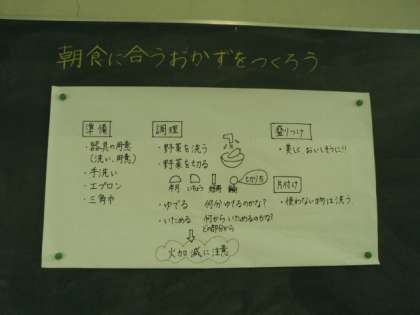 朝食に合うおかずをつくろう
準備
・器具の用意
(洗い、用意)
・手洗い
・エプロン
・三角巾
調理
・野菜を洗う
・野菜を切る
半月 いちょう
切り方
・ゆでる 何分ゆでるのかな?
・いためる 何からいためるのかな?
どの部分から
火加減に注意
盛りつけ
・美しく、おいしそうに!!
片付け
・使わない物は洗う